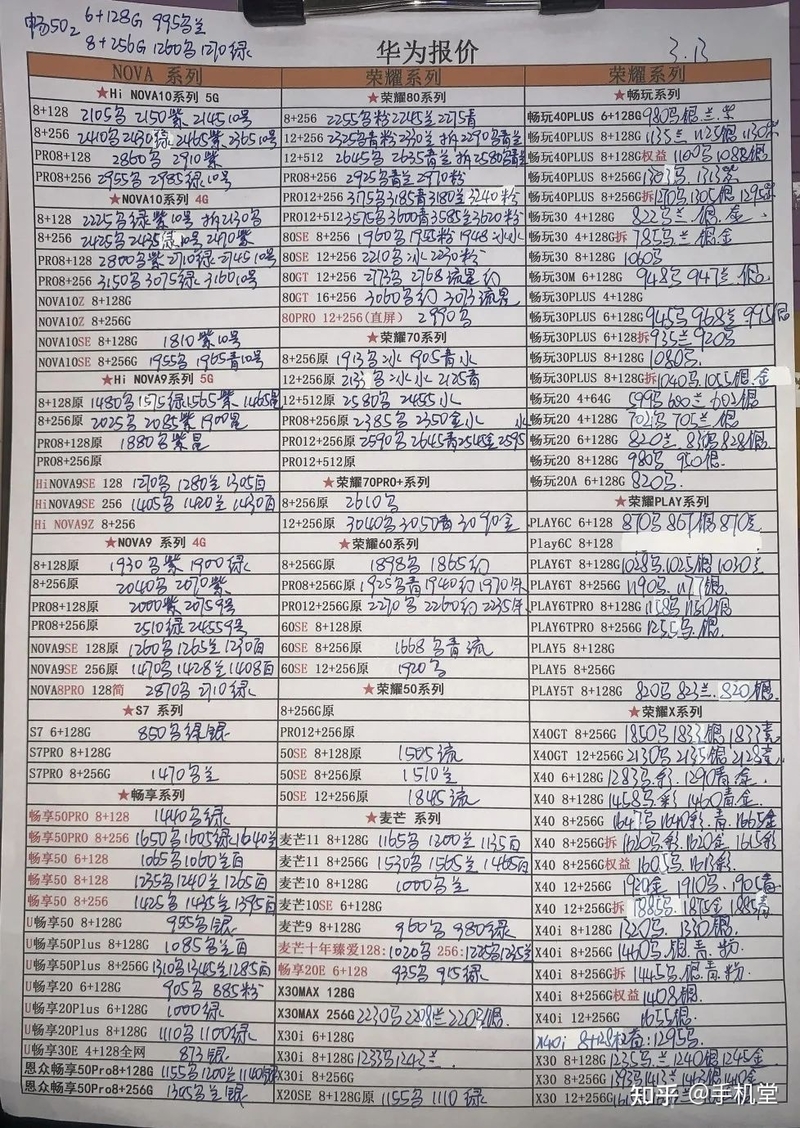 畅50z 6+128G 995名兰
8+256G 1260名 1270绿
华为报价
3.13
NOVA 系列
★Hi NOVA10系列 5G
8+128 2105名 2150紫 2145 10号
8+256 2410名 2430绿 2465紫 2365 10号
PRO8+128 2860名 2910紫
PRO8+256 2955名 2985绿 10号
★NOVA10系列 4G
8+128 2225名绿紫10号 拆2130名
8+256 2425名 2435绿10号 2470紫
PRO8+128 2800名紫 2710绿 2745 10号
PRO8+256 3150名 3075绿 3160 10号
NOVA10Z 8+128G
NOVA10Z 8+256G
NOVA10SE 8+128G 1810紫10号
NOVA10SE 8+256G 1955名 1965青10号
★Hi NOVA9系列 5G
8+128原 1480名 1575绿 1565紫 1465星
8+256原 2025名 2085紫 1900星
PRO8+128原 1880名紫星
PRO8+256原
HiNOVA9SE 128 1270名 1280兰 1305白
HiNOVA9SE 256 1405名 1420兰 1430白
Hi NOVA9Z 8+256
★NOVA9 系列 4G
8+128原 1930名紫 1900绿
8+256原 2040名 2070紫
PRO8+128原 2000紫 2075 9号
PRO8+256原 2510绿 2455 9号
NOVA9SE 128原 1260名 1265兰 1230白
NOVA9SE 256原 1470名 1428兰 1408白
NOVA8PRO 128简 2870名 2710绿
★S7 系列
S7 6+128G 850名绿银
S7PRO 8+128G
S7PRO 8+256G 1470名兰
★畅享系列
畅享50PRO 8+128 1440名绿
畅享50PRO 8+256 1650名 1605绿 1640兰
畅享50 6+128 1065名 1060兰白
畅享50 8+128 1235名 1240兰 1265白
畅享50 8+256 1425名 1435兰 1395白
U畅享50 8+128G 955名银
U畅享50Plus 8+128G 1085名兰白
U畅享50Plus 8+256G 1310名 1345兰 1285白
U畅享20 6+128G 905名 885粉
U畅享20Plus 6+128G 1000绿
U畅享20Plus 8+128G 1110名 1100绿
U畅享30E 4+128全网 873银
恩众畅享50Pro8+128G 1155名 1200兰 1140银
恩众畅享50Pro8+256G 1305名银
荣耀系列
★荣耀80系列
8+256 2255名粉 2245兰 2275青
12+256 2325名青粉 2330兰 拆2290名青兰
12+512 2645名 2635青兰 拆2580名青兰
PRO8+256 2925名青兰 2970粉
PRO12+256 3175名 3185青 3180兰 3240粉
PRO12+512 3575名 3600青 3585兰 3620粉
80SE 8+256 1960名 1955粉 1948冰水
80SE 12+256 2210名冰 2230粉
80GT 12+256 2773名 2768流星幻
80GT 16+256 3060名幻 3073流星
80PRO 12+256(直屏) 2990名
★荣耀70系列
8+256原 1913名冰 1905青水
12+256原 2133名冰水 2125青
12+512原 2580名 2455水
PRO8+256原 2385名 2350金水
PRO12+256原 2590名 2645青 2545金 2595水
PRO12+512原
★荣耀70PRO+系列
8+256原 2610名
12+256原 3040名 3050青 3090金
★荣耀60系列
8+256G原 1898名 1865幻
PRO8+256G原 1925名青 1940幻 1970朱
PRO12+256原 2270名 2260幻 2235朱
60SE 8+128原
60SE 8+256原 1668名青流
60SE 12+256原 1920名
★荣耀50系列
8+256G原
PRO12+256原
50SE 8+128原 1505流
50SE 8+256原 1510兰
50SE 12+256原 1845流
★麦芒 系列
麦芒11 8+128G 1165名 1200兰 1135白
麦芒11 8+256G 1530名 1565兰 1465白
麦芒10 8+128G 1000名兰
麦芒10SE 6+128G
麦芒9 8+128G 960名 980绿
麦芒十年臻爱128:1020名 256:1225名 1235兰
畅享20E 6+128 935名 915绿
X30MAX 128G
X30MAX 256G 2230名 2208兰 2205银
X30i 6+128G
X30i 8+128G 1233名 1243兰
X30i 8+256G
X20SE 8+128G原 1155名 1110绿
荣耀系列
★畅玩系列
畅玩40PLUS 6+128G 980名银.兰.朱
畅玩40PLUS 8+128G 1135兰 1125银 1130朱
畅玩40PLUS 8+128G权益 1100名 1088银
畅玩40PLUS 8+256G 1303名. 1313朱
畅玩40PLUS 8+256G拆 1270名 1305银 1295朱
畅玩30 4+128G 822名兰.银.金
畅玩30 4+128G拆 785名.兰.银.金
畅玩30 8+128G 1060名
畅玩30M 6+128G 948名 947兰.银.
畅玩30PLUS 4+128G
畅玩30PLUS 6+128G 945名 968兰 995银
畅玩30PLUS 6+128G拆 935兰 920名
畅玩30PLUS 8+128G 1080名.
畅玩30PLUS 8+128G拆 1040名 1055银.金
畅玩20 4+64G 599名 600兰 602银
畅玩20 4+128G 702名 705兰
畅玩20 6+128G 820兰 830名 828银
畅玩20 8+128G 980名 950银.
畅玩20A 6+128G 820名
★荣耀PLAY系列
PLAY6C 6+128 870名 867银 870兰
Play6C 8+128
PLAY6T 8+128G 1028名.1025银 1030兰
PLAY6T 8+256G 1190名. 1177银.
PLAY6TPRO 8+128G 1158名 1150银
PLAY6TPRO 8+256G 1255名.银.
PLAY5 8+128G
PLAY5 8+256G
PLAY5T 8+128G 820名 823兰 .820银
★荣耀X系列
X40GT 8+256G 1850名 1833银 1833青
X40GT 12+256G 2130名 2135银 2128青
X40 6+128G 1283名.彩. 1290青.金.
X40 8+128G 1458名.彩 1460青.金.
X40 8+256G 1647名 1640彩.青. 1665金
X40 8+256G拆 1620名.彩. 1620金 1615彩
X40 8+256G权益 1605名. 1613彩
X40 12+256G 1920金 1910名. 1905青
X40 12+256G拆 1885名. 1875金 1885青
X40i 8+128G 1320名. 1330银.
X40i 8+256G 1460名.银.青.粉
X40i 8+256G拆 1445名.银.青.粉
X40i 8+256G权益 1408银
X40i 12+256G 1655银.
X40i 8+128权益:1295名
X30 8+128G 1235名.兰 1240银 1245金
X30 8+256G 1393名 1413兰 1463银 1410金
X30 12+256G
知乎 @手机堂